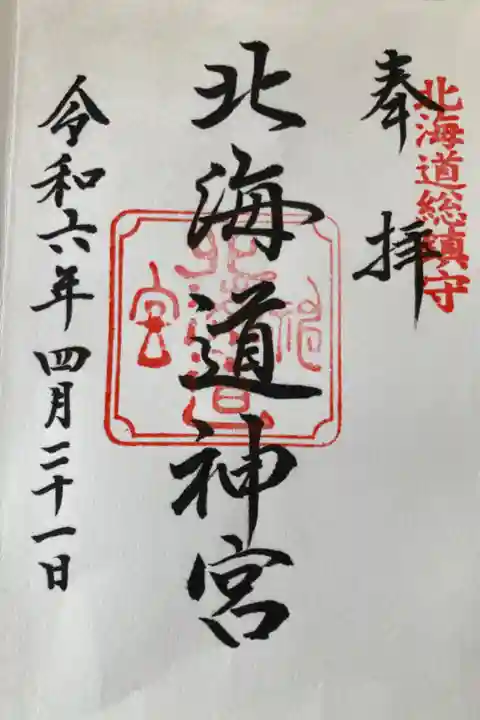 北海道総鎮守
奉拝
北海道神宮
北海道神宮
令和六年四月二十一日